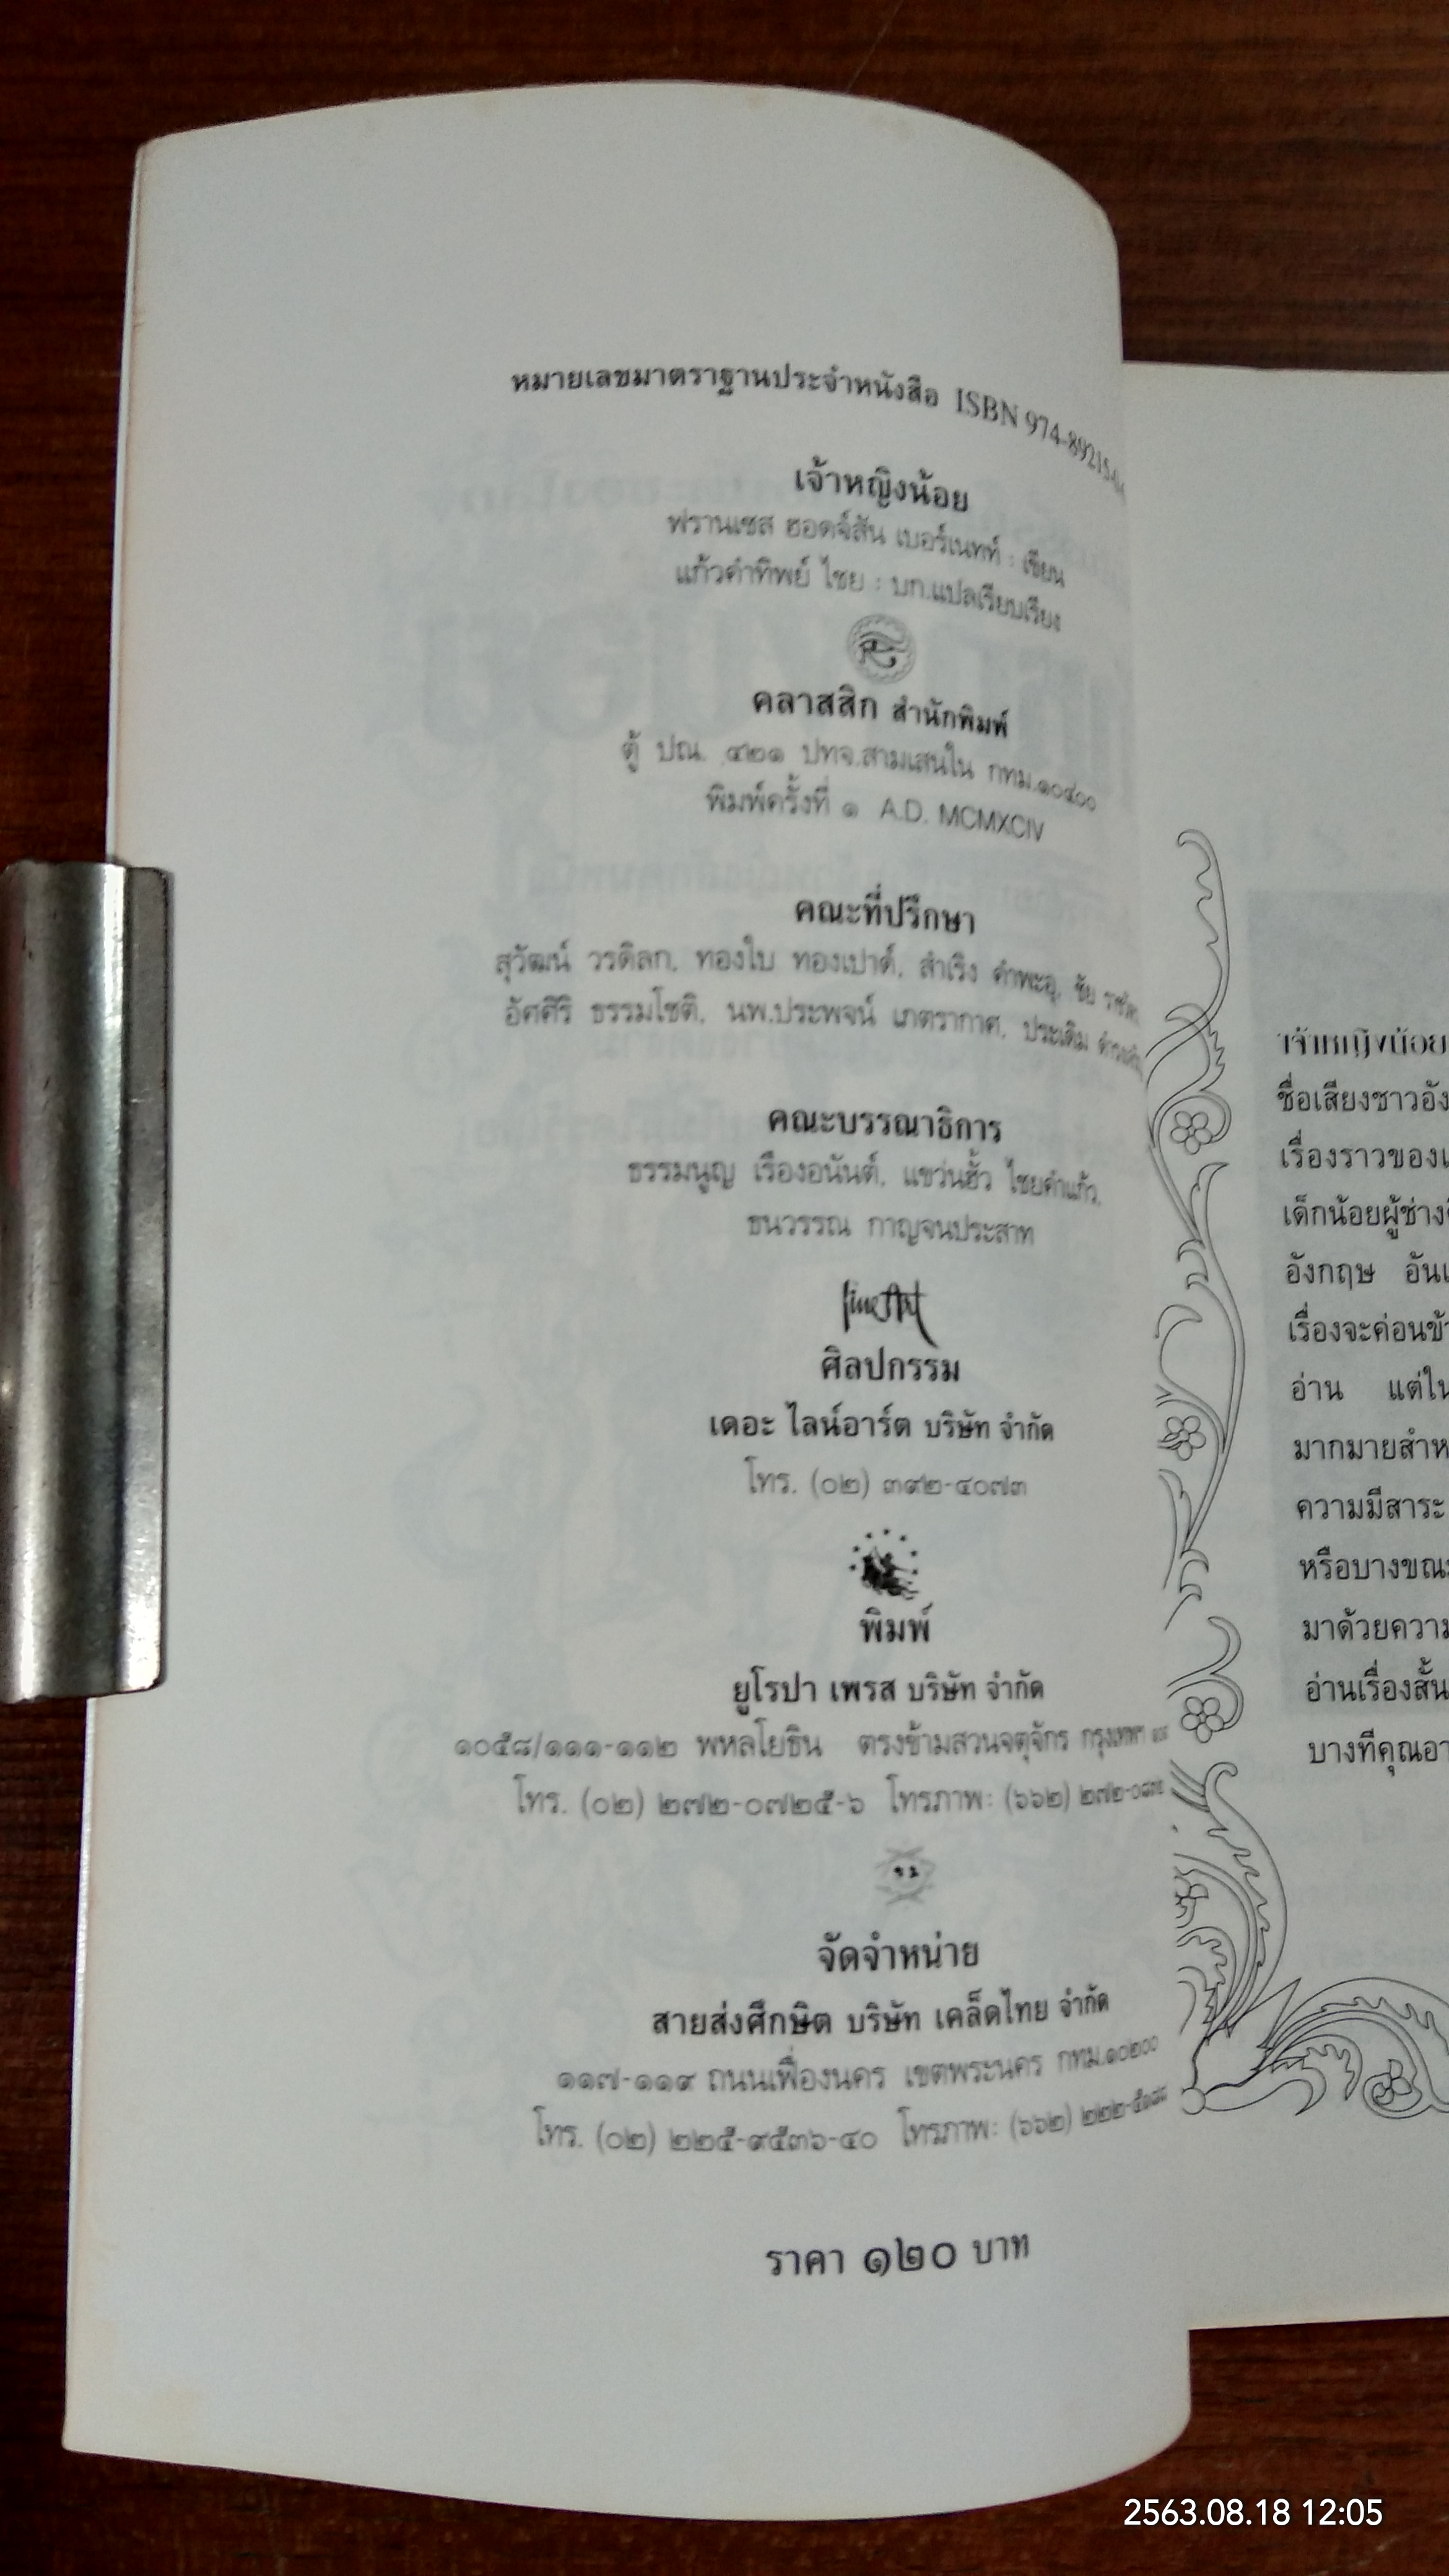 หมายเลขมาตราฐานประจำหนังสือ ISBN 974-89215
เจ้าหญิงน้อย
ฟรานเซส ฮอดจ์สัน เบอร์เนทท์ : เขียน
แก้วคำทิพย์ ไชย : บก.แปลเรียบเรียง
คลาสสิก สำนักพิมพ์
ตู้ ปณ. ๔๒๑ ปทจ.สามเสนใน กทม.๑๐๔๐๐
พิมพ์ครั้งที่ ๑ A.D. MCMXCIV
คณะที่ปรึกษา
สุวัฒน์ วรดิลก, ทองใบ ทองเปาด์, สำเริง คำพะอุ,
อัศศิริ ธรรมโชติ, นพ.ประพจน์ เภตรากาศ, ประเดิม
คณะบรรณาธิการ
ธรรมนูญ เรืองอนันต์, แขว่นฮิ้ว ไชยคำแก้ว,
ธนวรรณ กาญจนประสาท
ศิลปกรรม
เดอะ ไลน์อาร์ต บริษัท จำกัด
โทร. (๐๒) ๓๙๒-๔๐๗๓
พิมพ์
ยูโรปา เพรส บริษัท จำกัด
๑๐๕๘/๑๑๑-๑๑๒ พหลโยธิน ตรงข้ามสวนจตุจักร กรุงเทพฯ
โทร. (๐๒) ๒๗๒-๐๗๒๕-๖ โทรภาพ: (๖๖๒)
จัดจำหน่าย
สายส่งศึกษิต บริษัท เคล็ดไทย จำกัด
๑๑๗-๑๑๙ ถนนเฟื่องนคร เขตพระนคร กทม.๑๐๒๐๐
โทร. (๐๒) ๒๒๕-๙๕๓๖-๔๐ โทรภาพ: (๖๖๒)
ราคา ๑๒๐ บาท
เจ้าหญิงน้อย
ชื่อเสียงชาวอัง
เรื่องราวของเ
เด็กน้อยผู้ช่าง
อังกฤษ อันเ
เรื่องจะค่อนข้า
อ่าน แต่ใน
มากมายสำห
ความมีสาระ
หรือบางขณะ
มาด้วยความ
อ่านเรื่องสั้น
บางทีคุณอา
2563.08.18 12:05